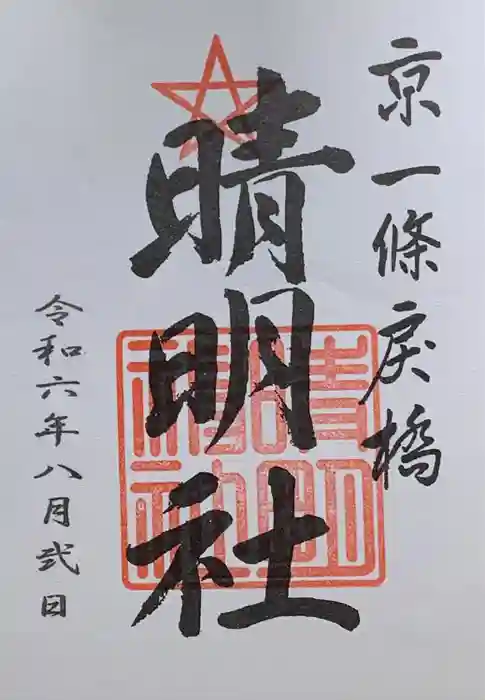 京一條戻橋
晴明社
令和六年八月弐日
晴明神社